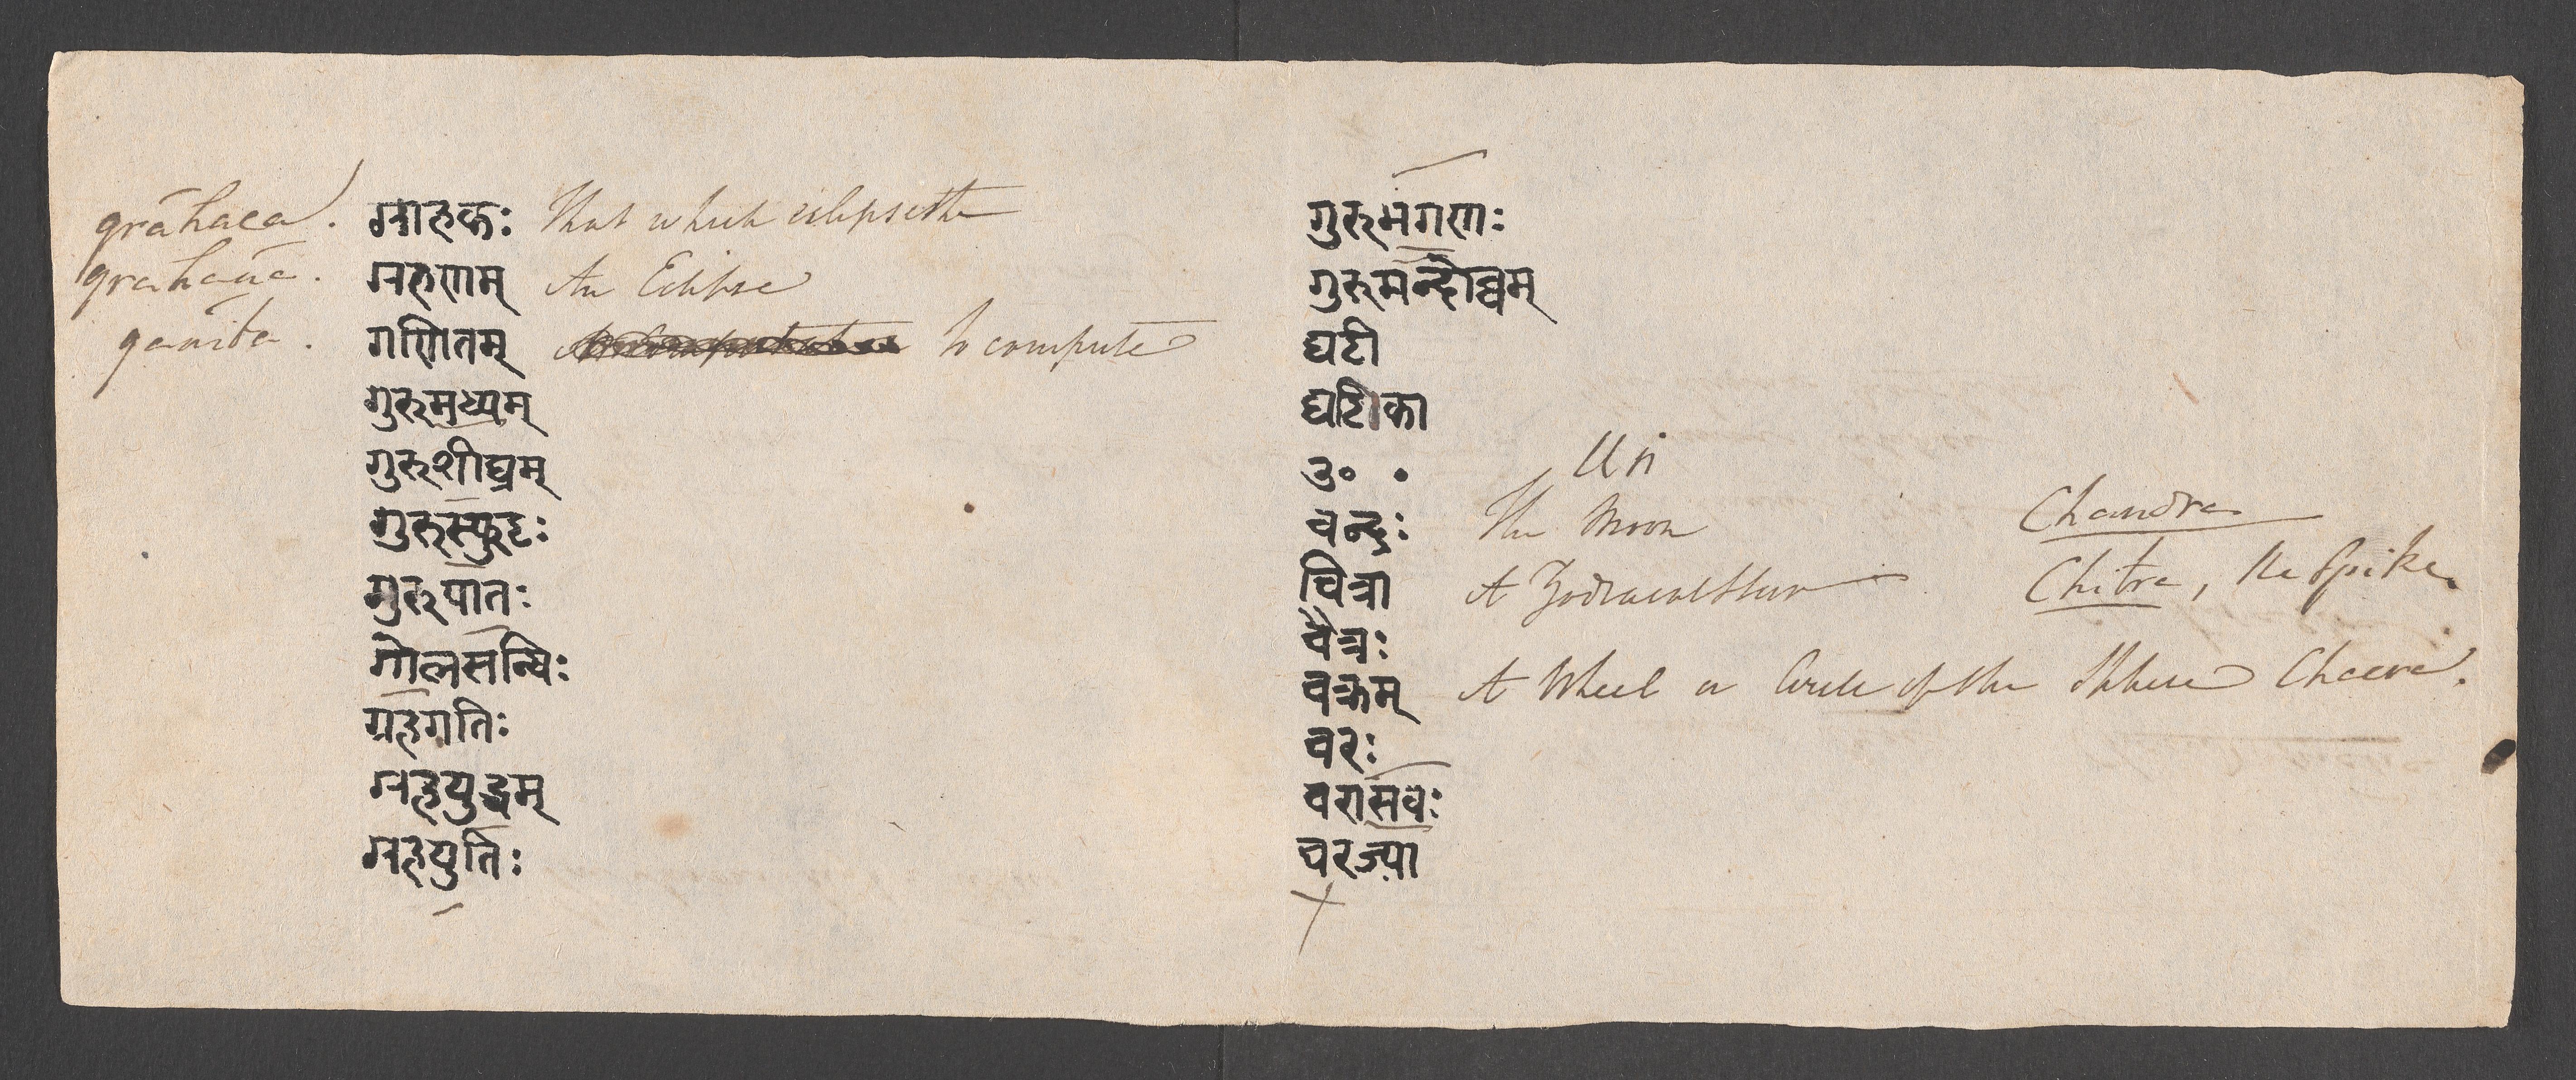 grăhaca. ग्राहकः That which eclipseth
grahana. ग्रहणम् An Eclipse
ganita. गणितम् to compute
गुरुमध्यम्
गुरुशीघ्रम्
गुरुस्फुटः
गुरुपातः
गोलसन्धिः
ग्रहगतिः
ग्रहयुद्धम्
ग्रहयुतिः
गुरुभगणः
गुरुमन्दोच्चम्
घटी
घटिका
उ॰
चन्द्रः The Moon Chandra
चित्रा A Zodiacal Star Chitra, the Spike.
चैत्रः
चक्रम् A Wheel or Circle of the Sphere Chacra.
चरः
चरासवः
चरज्या